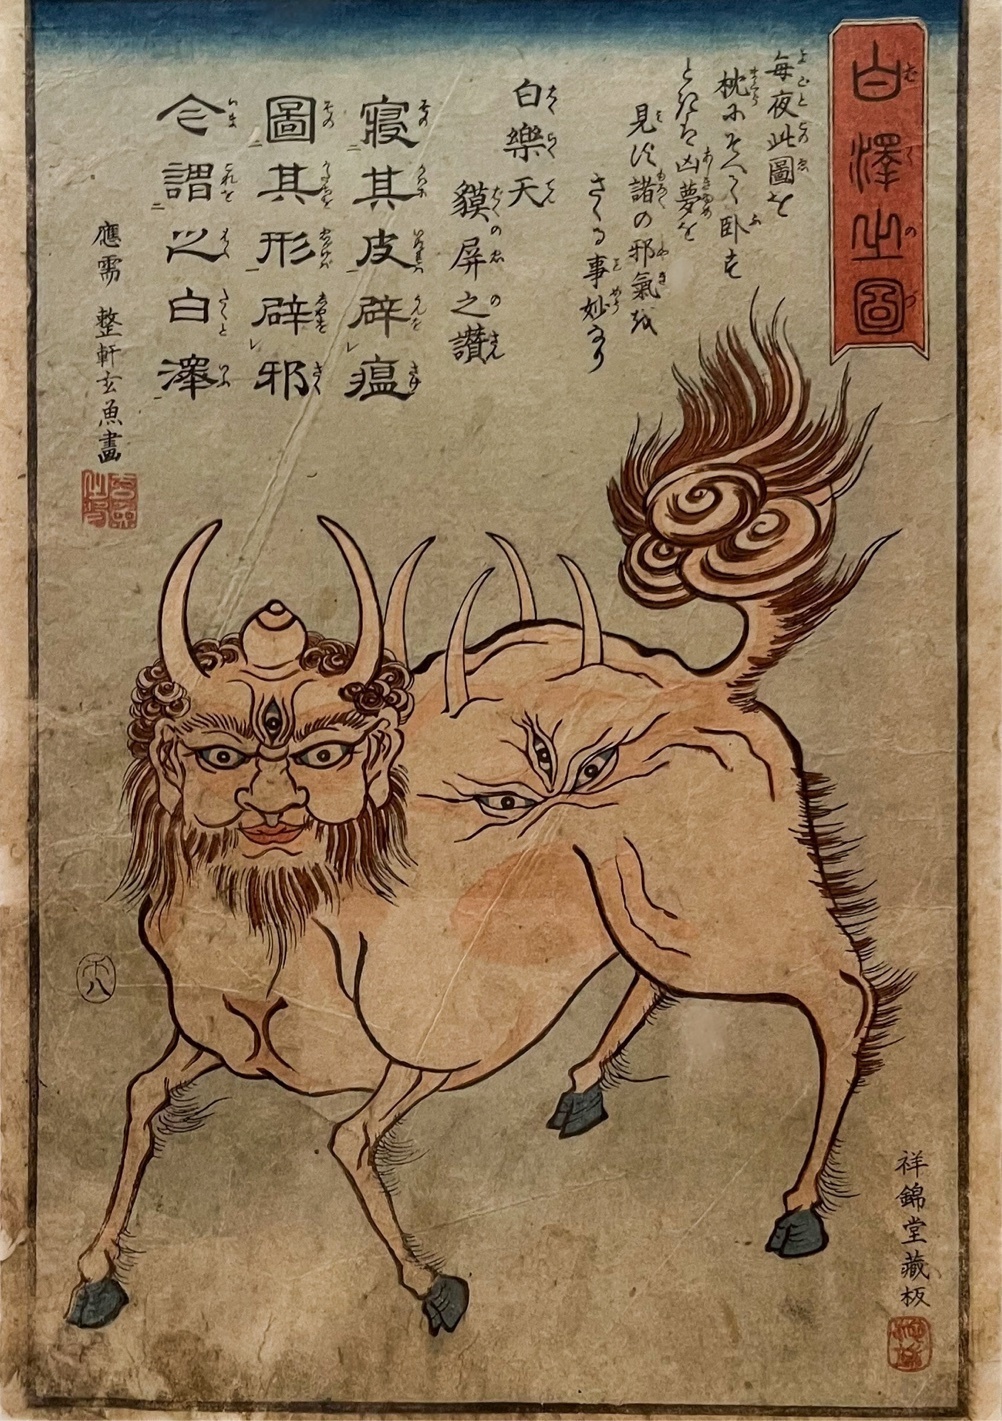 白澤之圖
毎夜此圖を
枕にそへて臥す
ときは凶夢を
見ず諸の邪氣を
さくる事妙なり
白樂天
貘屏之讃
寢其皮辟瘟
圖其形辟邪
今謂之白澤
應需 整軒玄魚畫
祥錦堂藏板